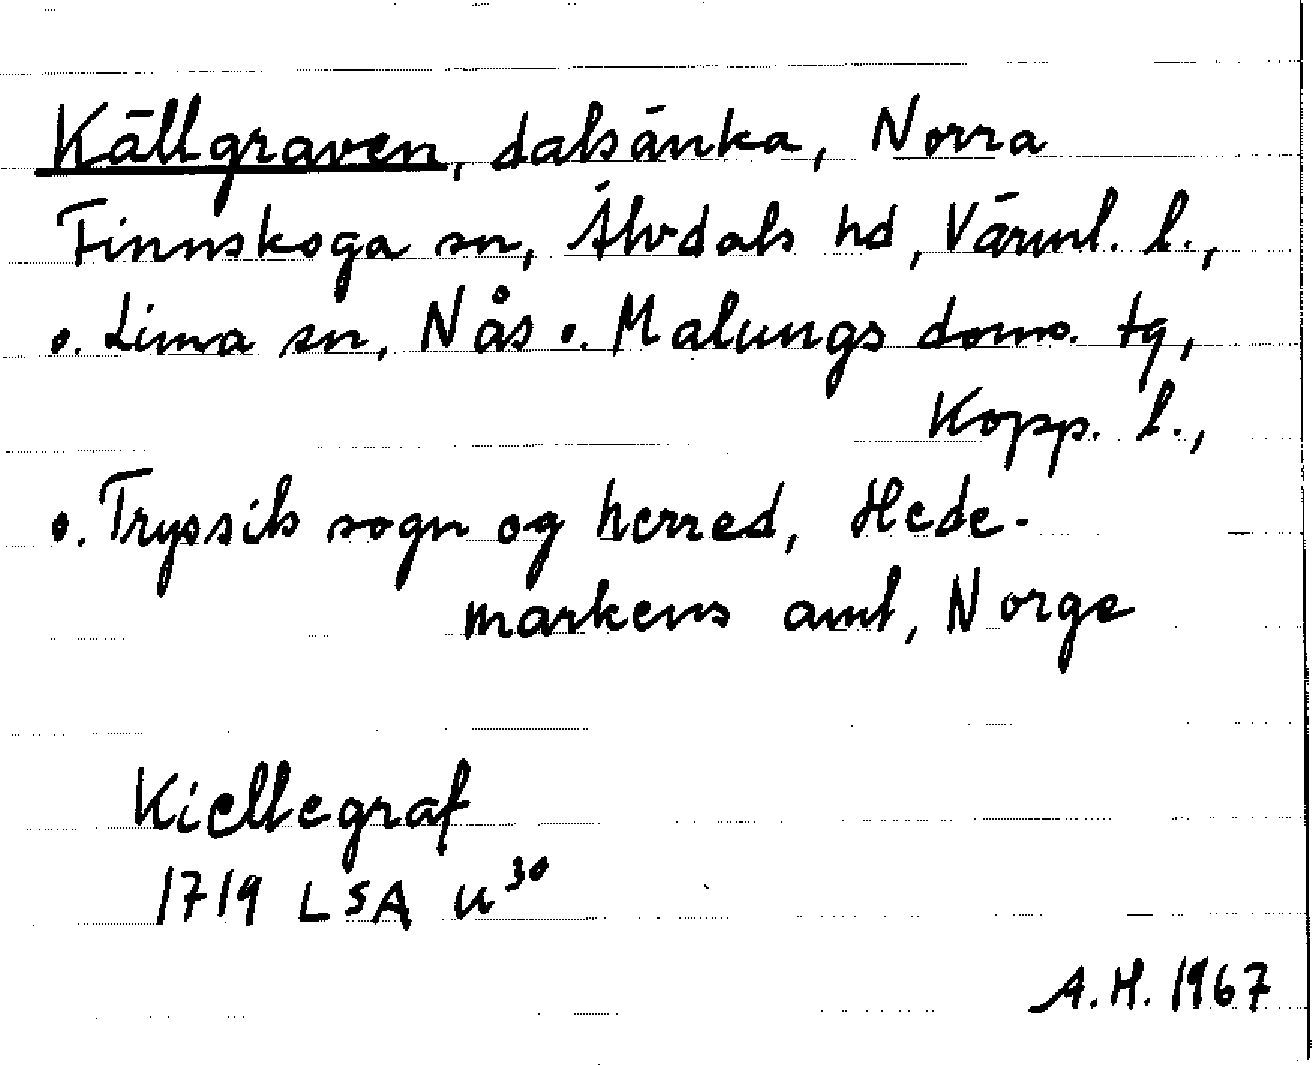 Källgraven, dalsänka, Norra
Finnskoga sn, Älvdals hd, Värml. l.,
o. Lima sn, Nås o. Malungs doms. tg,
Kopp. l.,
o. Tryssils sogn og herred, Hede-
markens amt, Norge
Kiellegraf
1719 LSA u³⁰
A.H. 1967